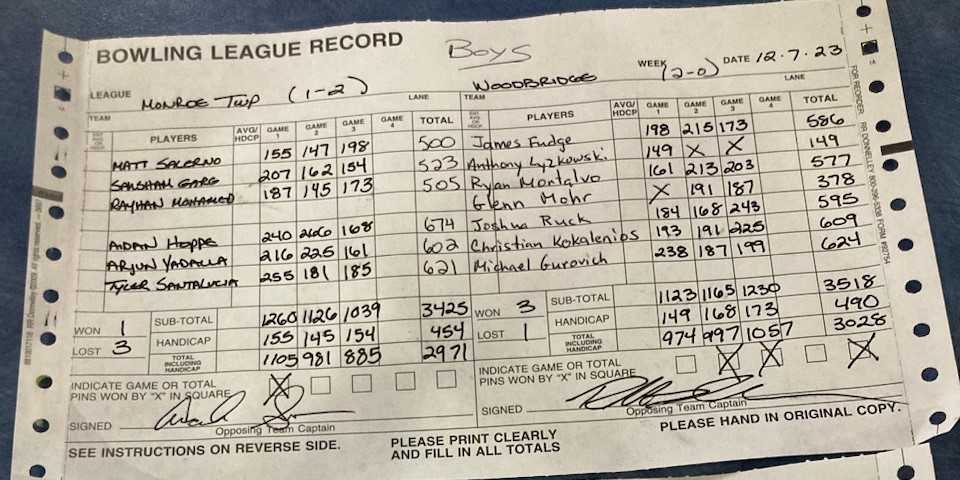 BOWLING LEAGUE RECORD Boys WEEK (2-0) DATE 12.7.23
LEAGUE MONROE TWP (1-2) LANE TEAM WOODBRIDGE LANE
TEAM PLAYERS AVG/HDCP GAME 1 GAME 2 GAME 3 GAME 4 TOTAL PLAYERS AVG/HDCP GAME 1 GAME 2 GAME 3 GAME 4 TOTAL
MATT SALERNO 155 147 198 500 James Fudge 198 215 173 586
SAKSHAM GARG 207 162 154 523 Anthony Lyzkowski 149 X X 149
RAYHAN MOHAMED 187 145 173 505 Ryan Montalvo 161 213 203 577
Glenn Mohr X 191 187 378
AIDAN HOPPE 240 266 168 674 Joshua Ruck 184 168 243 595
ARJUN YADALLA 216 225 161 602 Christian Kokalenios 193 191 225 609
TYLER SANTALUCIA 255 181 185 621 Michael Gurovich 238 187 199 624
WON 1 SUB-TOTAL 1260 1126 1039 3425 WON 3 SUB-TOTAL 1123 1165 1230 3518
LOST 3 HANDICAP 155 145 154 454 LOST 1 HANDICAP 149 168 173 490
TOTAL INCLUDING HANDICAP 1105 981 885 2971 TOTAL INCLUDING HANDICAP 974 997 1057 3028
INDICATE GAME OR TOTAL PINS WON BY "X" IN SQUARE X INDICATE GAME OR TOTAL PINS WON BY "X" IN SQUARE X X X
SIGNED Opposing Team Captain SIGNED Opposing Team Captain
SEE INSTRUCTIONS ON REVERSE SIDE. PLEASE PRINT CLEARLY AND FILL IN ALL TOTALS PLEASE HAND IN ORIGINAL COPY.
FOR REORDER RR DONNELLEY 800-296-5338 FORM #92754